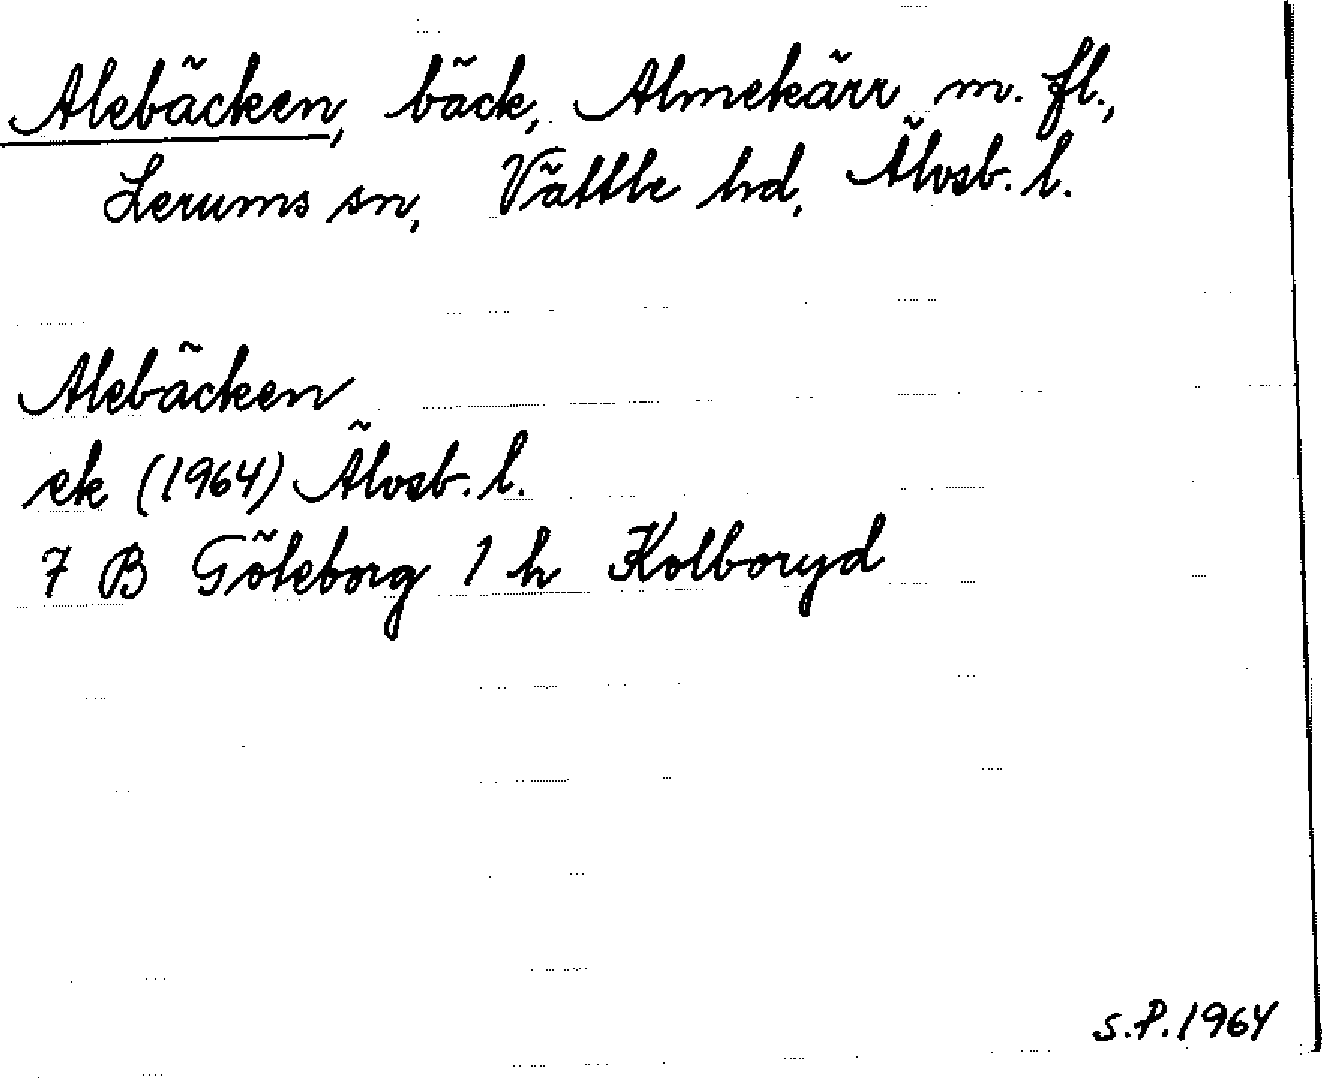 Alebäcken, bäck, Almekärr m. fl.,
Lerums sn, Vättle hd, Älvsb. l.
Alebäcken
ek (1964) Älvsb. l.
7 B Göteborg 1 h Kolboryd
S.P. 1964